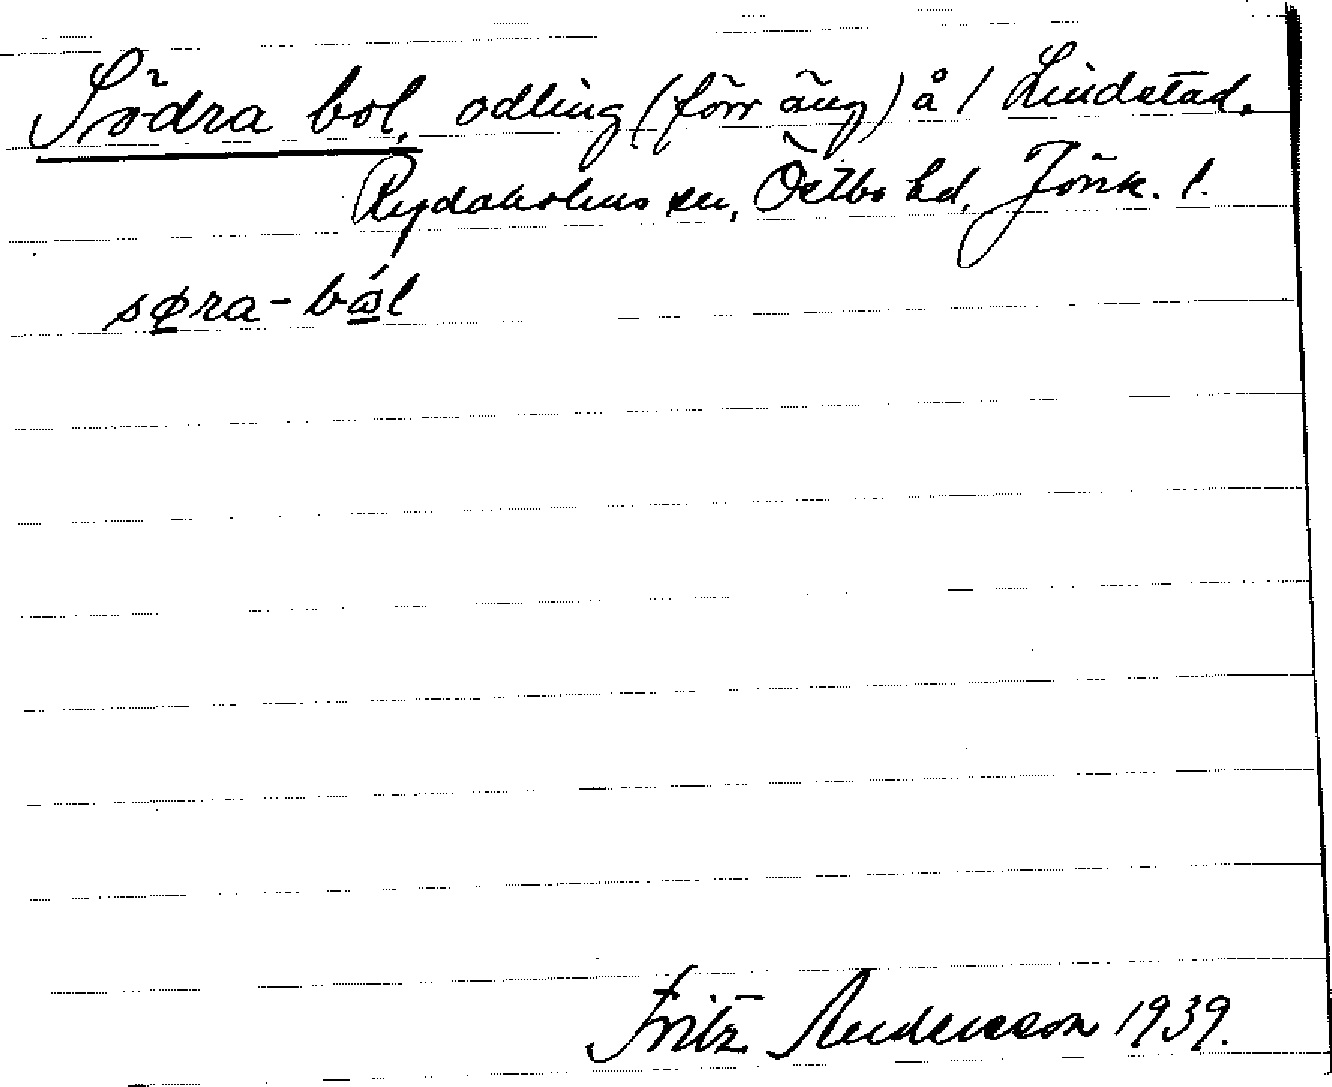 Södra bol, odling (förr äng) å 1 Lindstad.
Rydaholms sn, Östbo hd, Jönk. l.
søra-bål
Fritz Andersson 1939.